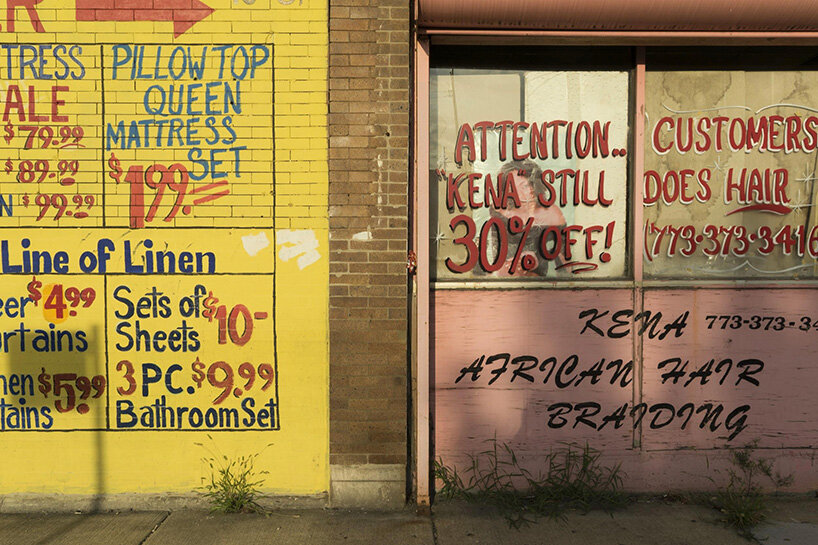 TRESS
ALE
$79.99
$89.99
N $99.99
PILLOW TOP
QUEEN
MATTRESS
SET
$199.=
Line of Linen
eer $4.99
rtains
en $5.99
tains
Sets of $10-
Sheets
3 PC. $9.99
Bathroom Set
ATTENTION..
"KENA" STILL
30% OFF!
CUSTOMERS
DOES HAIR
(773-373-346
KENA 773-373-34
AFRICAN HAIR
BRAIDING